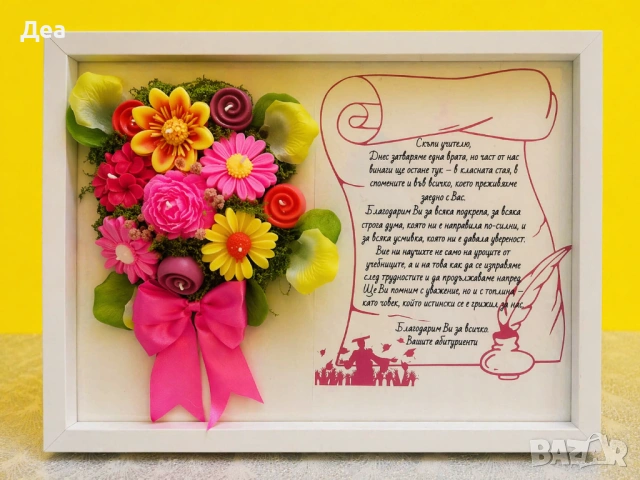 Деа
Скъпи учителю,
Днес затваряме една врата, но част от нас
винаги ще остане тук – в класната стая, в
спомените и във всичко, което преживяхме
заедно с Вас.
Благодарим Ви за всяка подкрепа, за всяка
строга дума, която ни е направила по-силни, и
за всяка усмивка, която ни е давала увереност.
Вие ни научихте не само на уроците от
учебниците, а и на това как да се изправяме
след трудностите и да продължаваме напред.
Ще Ви помним с уважение, но и с топлина –
като човек, който истински се е грижил за нас.
Благодарим Ви за всичко.
Вашите абитуриенти
BAZAR